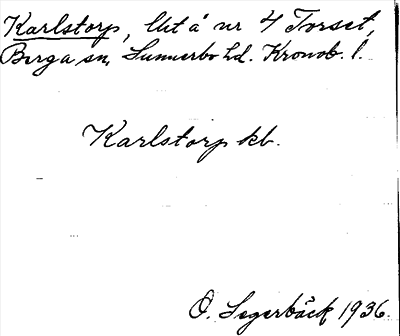 Karlstorp, lht å nr 4 Torset,
Berga sn, Sunnerbo hd. Kronob. l.
Karlstorp kb.
O. Segerbäck 1936.